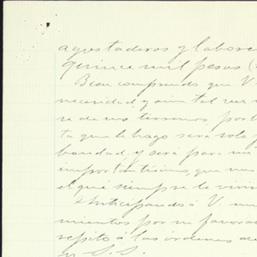 agostaderos y labore
quince mil pesos (
Bien comprendo que V
necesidad y aun tal vez
de sus terrenos por lo
ta que le hago será solo
bondad y será para mi
importantisima, que nu
el que siempre le vivi
Anticipando á V. un
mientos por su favora
repito á las órdenes de
su S. S.